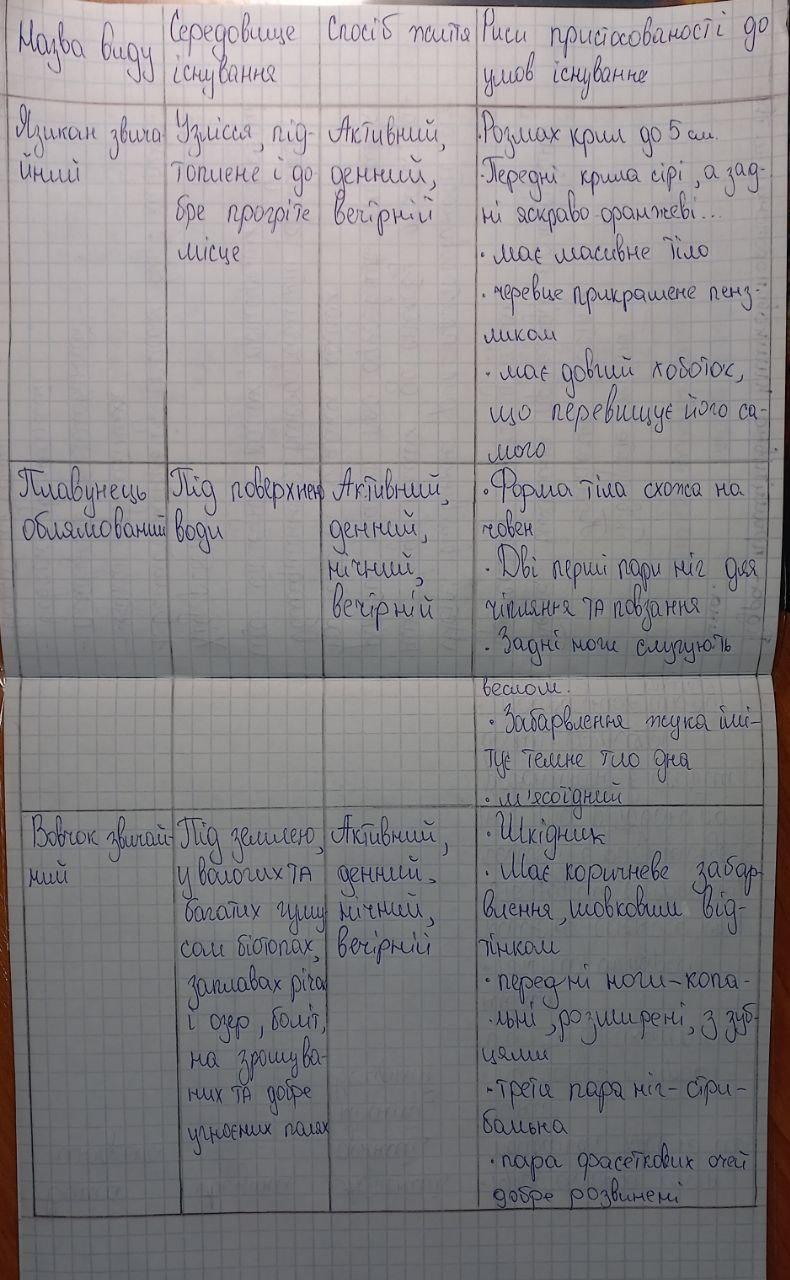 Назва виду
Середовище
існування
Спосіб життя
Риси пристосованості до
умов існування
Язикан звича
йний
Узлісся, під-
топлене і до
бре прогріте
місце
Активний,
денний,
вечірній
·Розмах крил до 5 см.
·Передні крила сірі, а зад-
ні яскраво-оранжеві...
· має масивне тіло
· черевце прикрашене пенз-
ликом
· має довгий хоботок,
що перевищує його са-
мого
Плавунець
облямований
Під поверхнею
води
Активний,
денний,
нічний,
вечірній
· Форма тіла схожа на
човен
· Дві перші пари ніг для
чіпляння та повзання
· Задні ноги слугують
веслом.
· Забарвлення жука імі-
тує темне тло дна
· м'ясоїдний
Вовчок звичай-
ний
Під землею,
у вологих та
багатих гуму
сом біотопах,
заплавах річок
і озер, боліт,
на зрошува-
них та добре
угноєних полях
Активний,
денний,
нічний,
вечірній
· Шкідник
· Має коричневе забар-
влення, шовковим від-
тінком
· передні ноги-копа-
льні, розширені, з зуб-
цями
· третя пара ніг - стри-
бальна
· пара фасеткових очей
добре розвинені